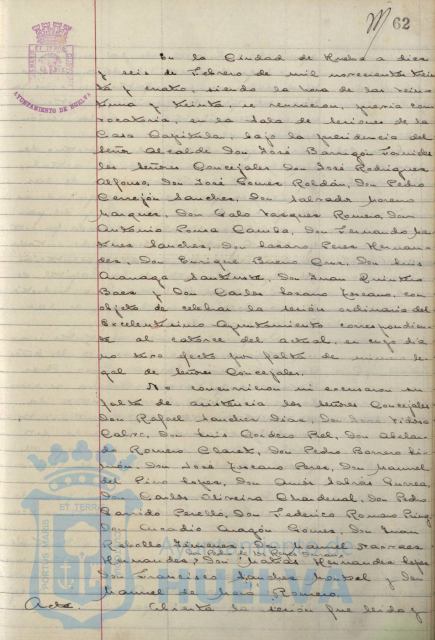 62
AYUNTAMIENTO DE HUELVA
En la Ciudad de Huelva a diez
y seis de Febrero de mil novecientos trein
ta y cuatro, siendo la hora de las veinte
una y treinta, se reunieron, previa con
vocatoria, en la Sala de sesiones de la
Casa Capitular, bajo la presidencia del
Señor Alcalde Don José Barrigón Fornieles
los Señores Concejales Don José Rodríguez
Alfonso, Don José Gomez Roldán, Don Pedro
Cerrejón Sanchez, Don Salvador Moreno
Marquez, Don Galo Vazquez Romero, Don
Antonio Ponce Camba, Don Fernando Mar
tinez Sanchez, Don Lazaro Perez Hernan-
dez, Don Enrique Bueno Cruz, Don Luis
Don Juan Quintero
Baez y Don Carlos Lozano Toscano, con
objeto de celebrar la sesión ordinaria del
Excelentísimo Ayuntamiento correspondien
te al catorce del actual, en cuyo dia
no tuvo efecto por falta de número le
gal de Señores Concejales.
No concurrieron ni excusaron su
falta de asistencia los Señores Concejales
Don Rafael Sanchez Diaz, Don José
Calvo, Don Luis Cordero Piel, Don Abelar
do Romero Claret, Don Pedro Borrero Li-
món, Don José Toscano Perez, Don Manuel
del Pino Lopez, Don Amós Sabrás Gurrea,
Don Carlos Oliveira Chardenal, Don Pedro
Garrido Perelló, Don Federico Romero
Don Arcadio Aragón Gomez, Don Juan
Rebollo Jimenez, Don Manuel
Hernandez, Don Matías Hernandez Lopez
Don Francisco Sanchez y Don
Manuel de Romero.
Acta. Abierta la sesión fue leida y
PORTUS MARIS ET TERRAE
Ayuntamiento de
HUELVA